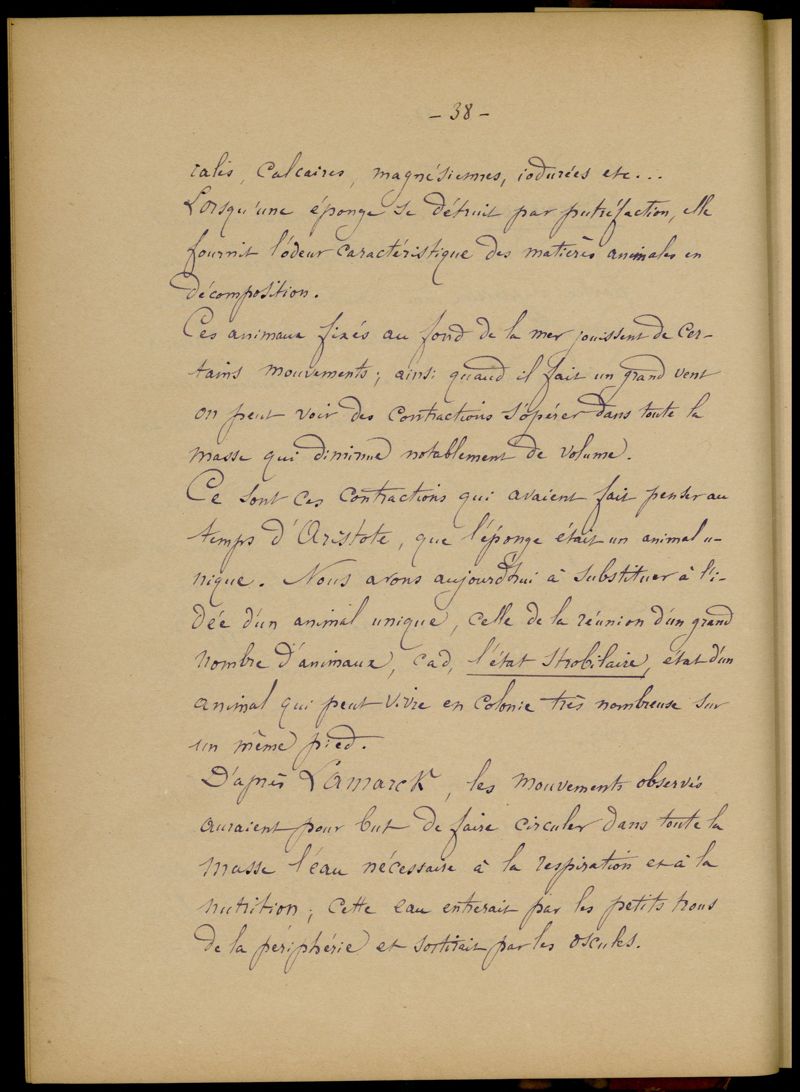 - 38 -
calis, calcaires, magnésiennes, iodurées etc...
Lorsqu'une éponge se détruit par putréfaction, elle
fournit l'odeur caractéristique des matières animales en
décomposition.
Ces animaux fixés au fond de la mer jouissent de cer-
tains mouvements; ainsi quand il fait un grand vent
on peut voir des contractions s'opérer dans toute la
masse qui diminue notablement de volume.
Ce sont ces contractions qui avaient fait penser au
temps d'Aristote, que l'éponge était un animal u-
nique. Nous avons aujourd'hui à substituer à l'i-
dée d'un animal unique, celle de la réunion d'un grand
nombre d'animaux, cad, l'état strobilaire, état d'un
animal qui peut vivre en colonie très nombreuse sur
un même pied.
D'après Lamarck, les mouvements observés
auraient pour but de faire circuler dans toute la
masse l'eau nécessaire à la respiration et à la
nutrition; cette eau entrerait par les petits trous
de la périphérie et sortirait par les oscules.